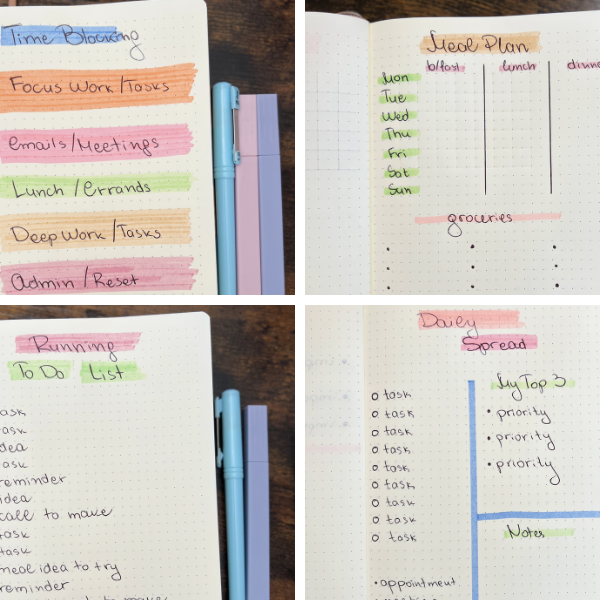 Time Blocking
Focus Work/Tasks
emails/Meetings
Lunch/Errands
Deep Work/Tasks
Admin/Reset
Meal Plan
b/fast lunch
Mon
Tue
Wed
Thu
Fri
Sat
Sun
groceries
Running
To Do List
reminder
idea
call to make
task
task
meal idea to try
reminder
Daily
Spread
My Top 3
• priority
• priority
• priority
o task
o task
o task
o task
o task
o task
o task
o task
o task
Notes
• appointment